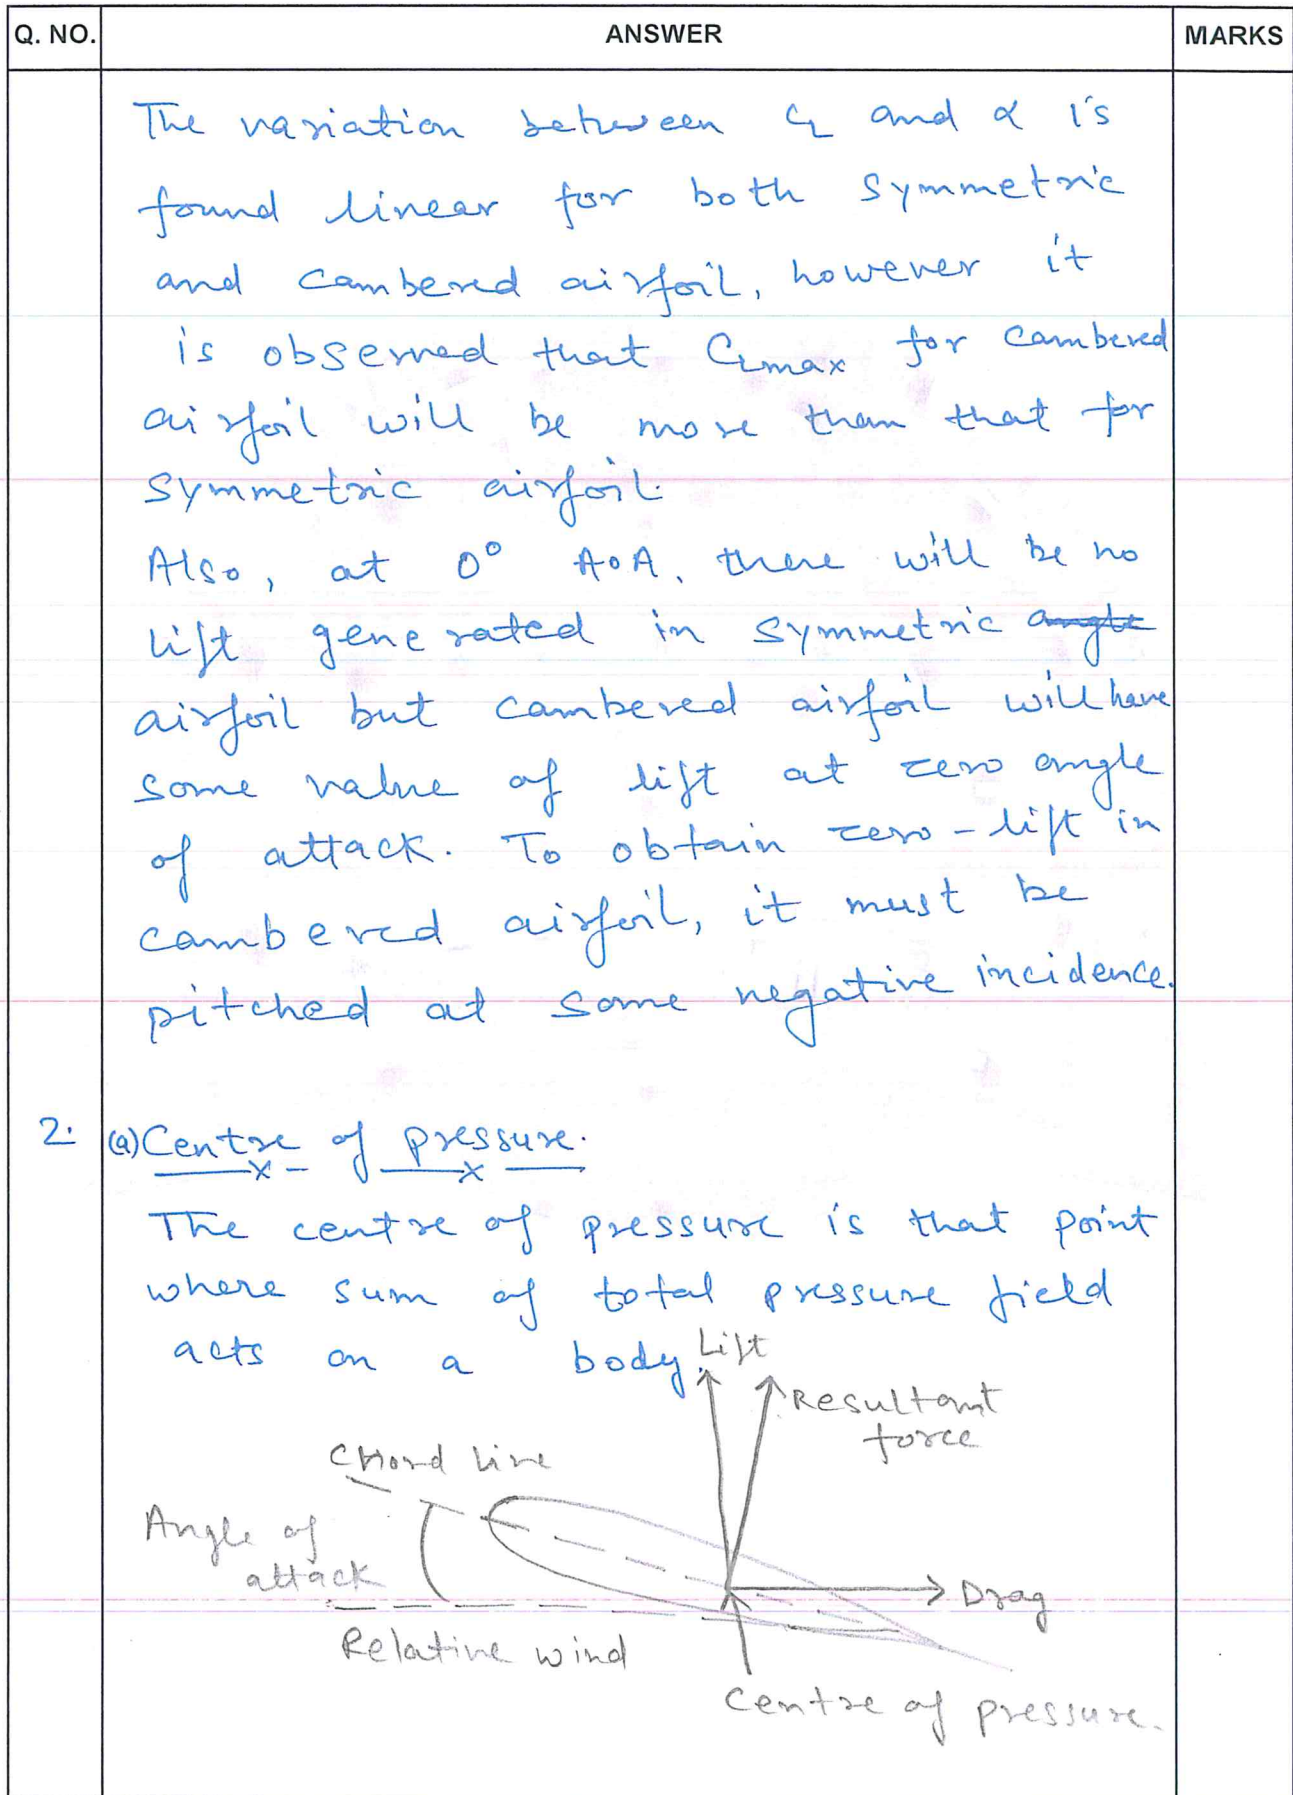 Q. NO. ANSWER MARKS
The variation between CL and α is
found linear for both symmetric
and cambered airfoil, however it
is observed that CLmax for cambered
airfoil will be more than that for
symmetric airfoil.
Also, at 0° AoA, there will be no
lift generated in symmetric angle
airfoil but cambered airfoil will have
some value of lift at zero angle
of attack. To obtain zero-lift in
cambered airfoil, it must be
pitched at some negative incidence.
2. (a) Centre of pressure.
The centre of pressure is that point
where sum of total pressure field
acts on a body.
Lift
Resultant
force
Chord line
Angle of
attack
Drag
Relative wind
Centre of pressure.